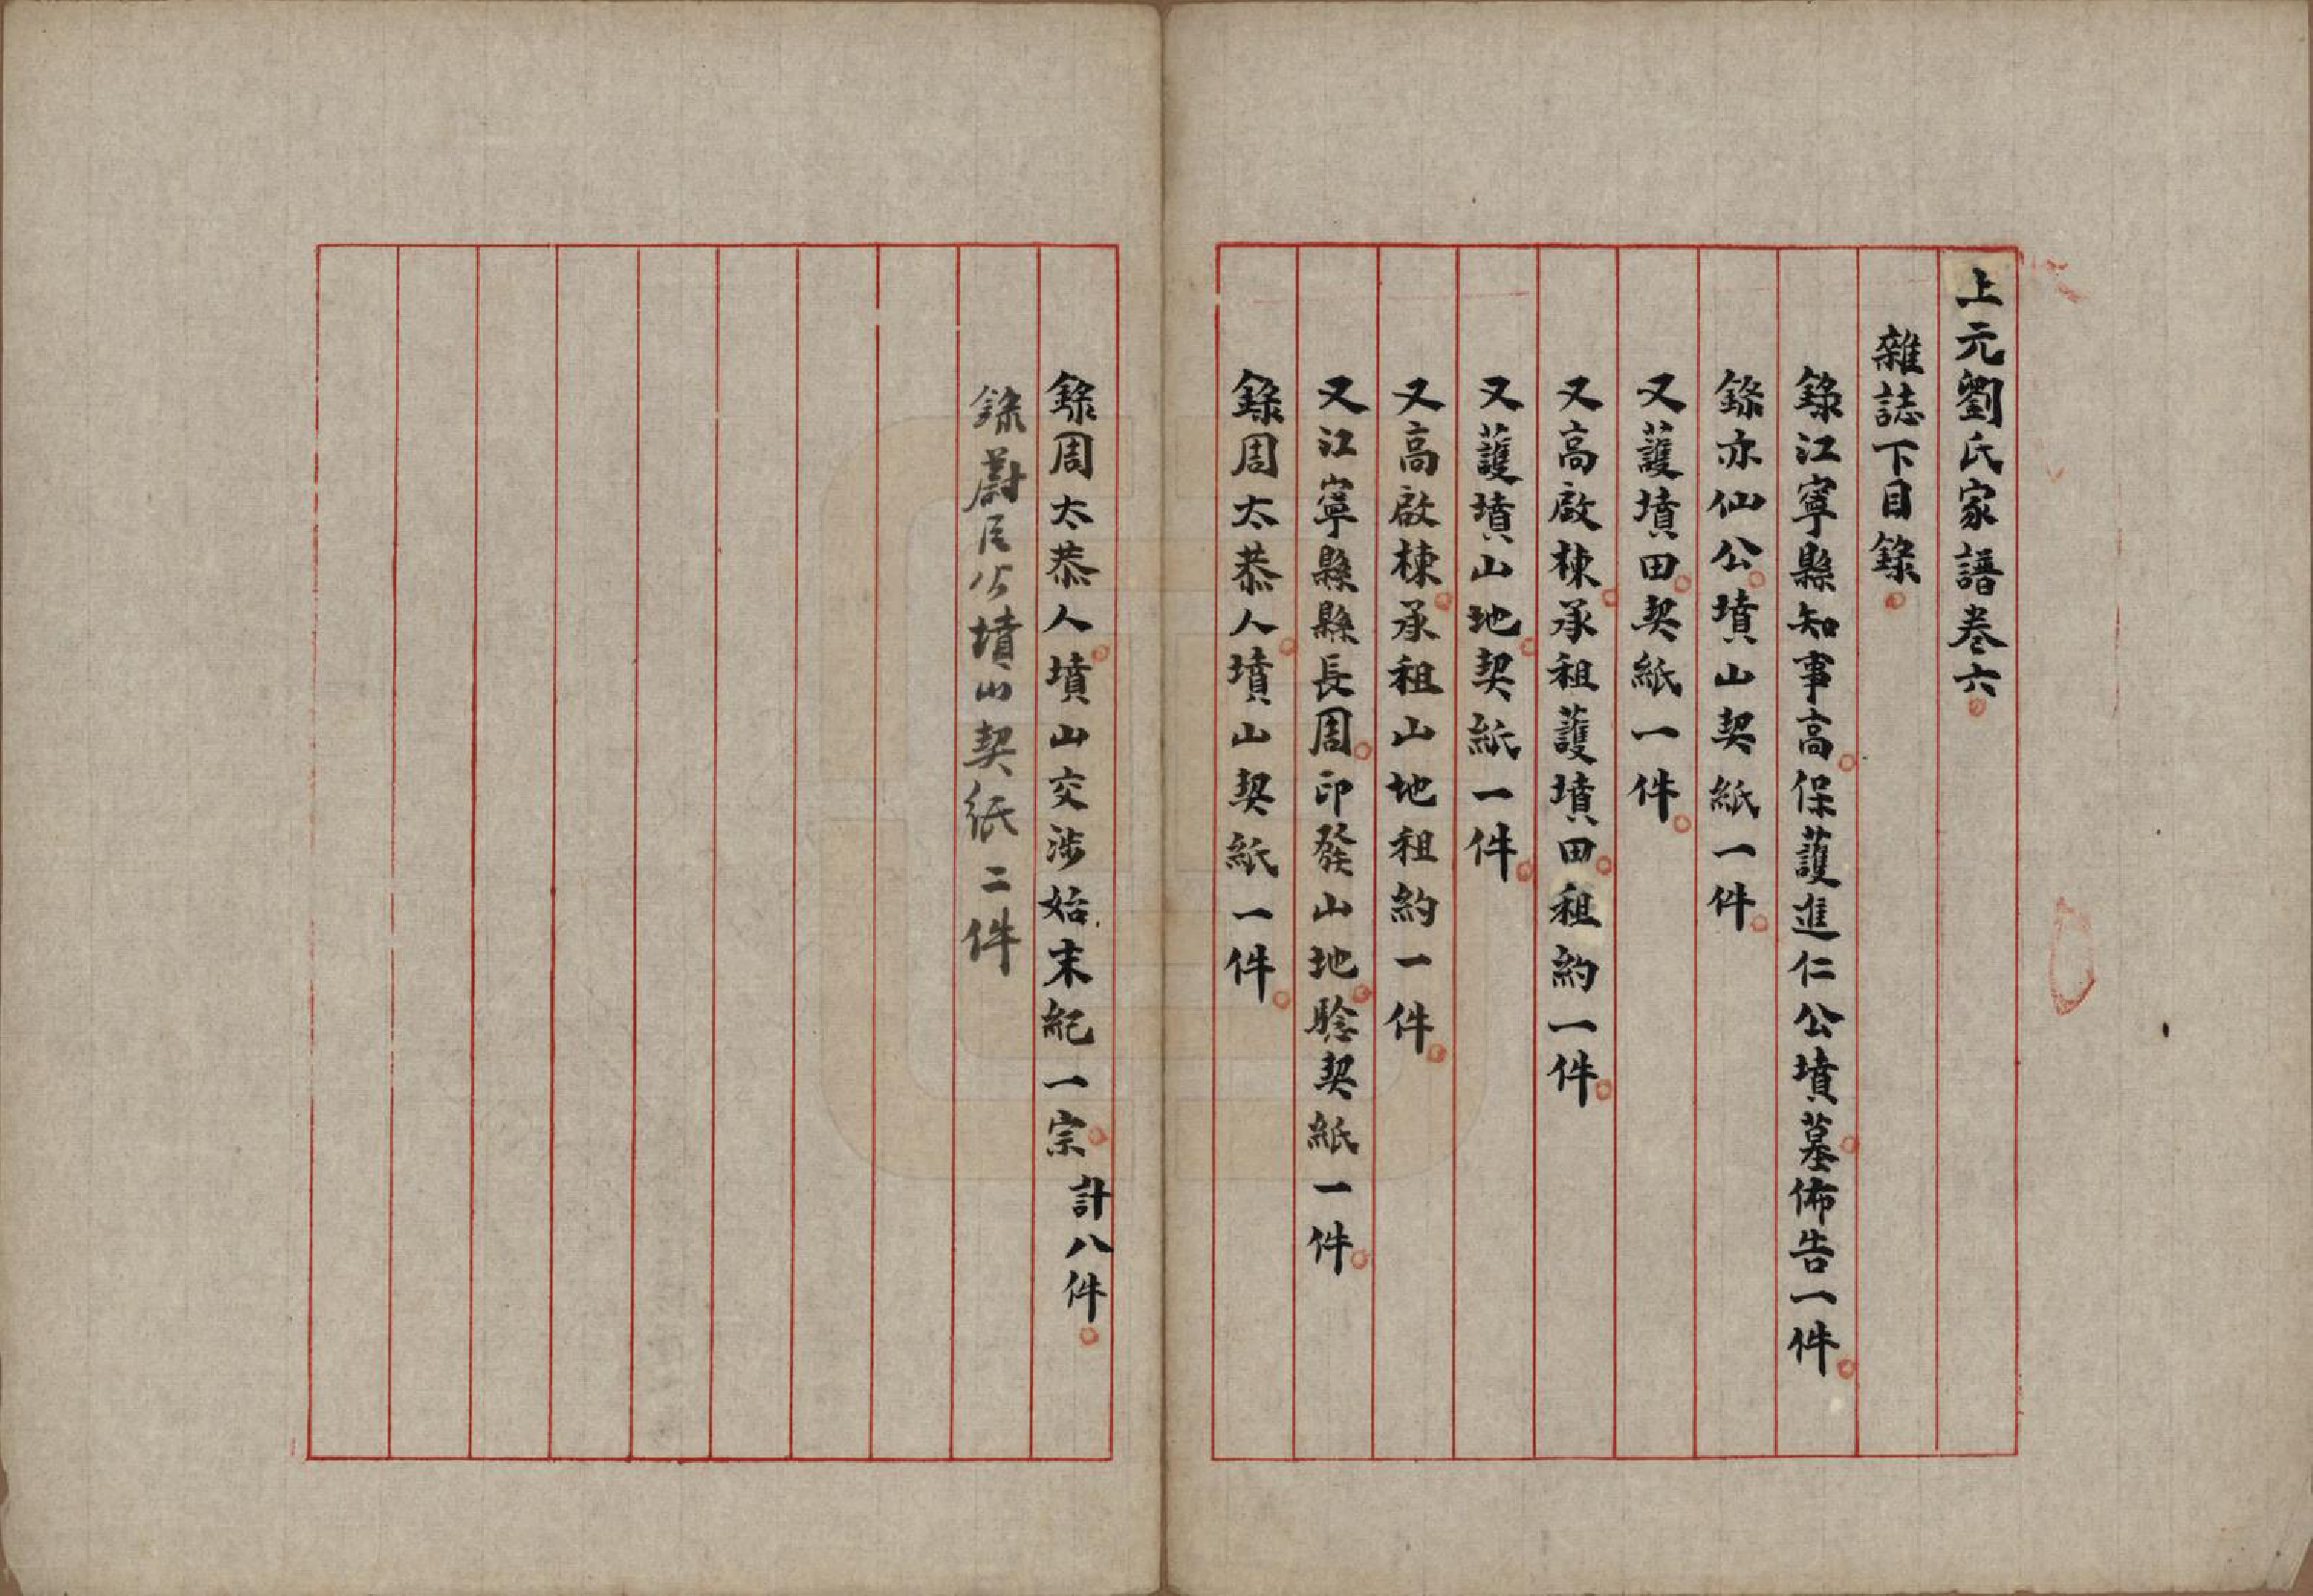 上元劉氏家譜卷六。
雜誌下目錄。
錄江寧縣知事高。保護進仁公墳墓。佈告一件。
錄亦仙公。墳山契紙一件。
又護墳田。契紙一件。
又高啟棟。承租護墳田。租約一件。
又護墳山地。契紙一件。
又高啟棟。承租山地租約一件。
又江寧縣縣長周。印發山地。驗契紙一件。
錄周太恭人。墳山契紙一件。
錄周太恭人。墳山交涉始末紀一宗。計八件。
錄蔚臣公墳山契紙二件